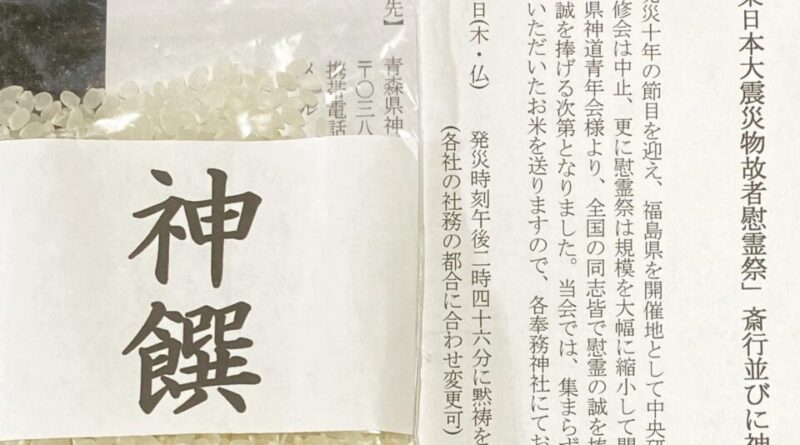 東日本大震災物故者慰霊祭」斎行並びに神
発災十年の節目を迎え、福島県を開催地として中央研
修会は中止、更に慰霊祭は規模を大幅に縮小して開
県神道青年会様より、全国の同志皆で慰霊の誠を捧
誠を捧げる次第となりました。当会では、集まらず
いただいたお米を送りますので、各奉務神社にてお
日(木・仏)
発災時刻午後二時四十六分に黙祷を
(各社の社務の都合に合わせ変更可)
先】
青森県神
〒〇三八
携帯電話
メール
神饌